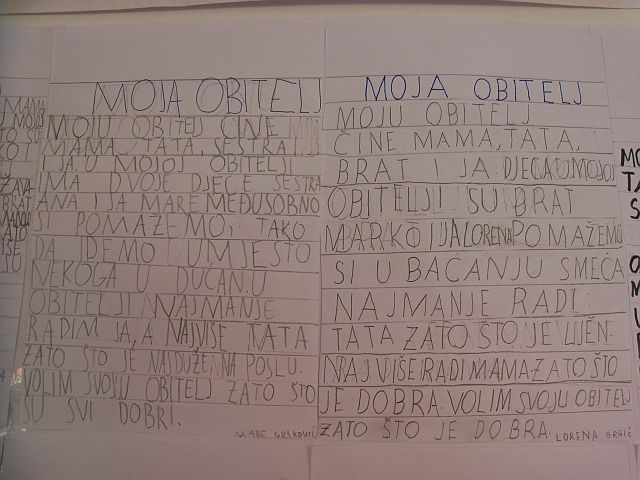 MOJA OBITELJ
MOJU OBITELJ ČINE
MAMA, TATA, SESTRA
I JA. U MOJOJ OBITELJI
IMA DVOJE DJECE SESTRA
ANA I JA MARE MEĐUSOBNO
SI POMAŽEMO, TAKO
DA IDEMO UMJESTO
NEKOGA U DUĆAN. U
OBITELJI NAJMANJE
RADIM JA, A NAJVIŠE TATA
ZATO ŠTO JE NAJDUŽE NA POSLU.
VOLIM SVOJU OBITELJ ZATO ŠTO
SU SVI DOBRI.
MARE GRŠKOVIĆ
MOJA OBITELJ
MOJU OBITELJ
ČINE: MAMA, TATA,
BRAT I JA. DJECA U MOJOJ
OBITELJI SU BRAT
MARKO I JA LORENA POMAŽEMO
SI U BACANJU SMEĆA
NAJMANJE RADI:
TATA ZATO ŠTO JE LIJEN.
NAJVIŠE RADI MAMA ZATO ŠTO
JE DOBRA. VOLIM SVOJU OBITELJ
ZATO ŠTO JE DOBRA.
LORENA GRGIĆ